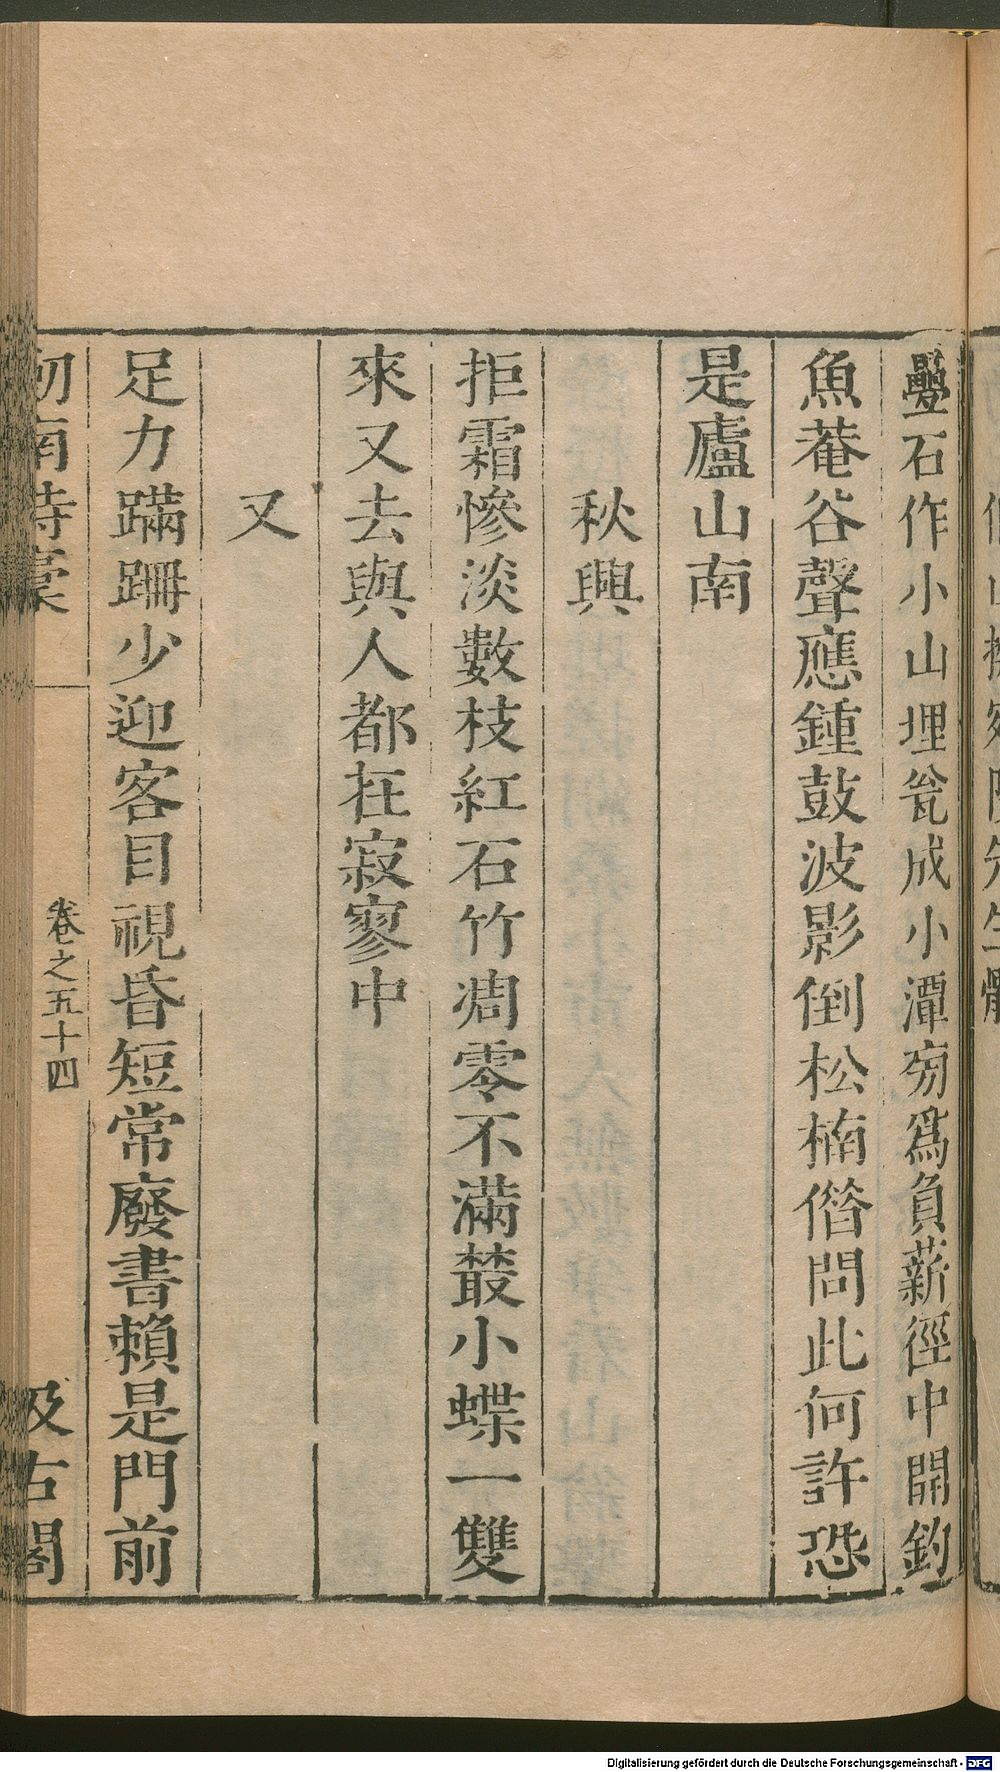 疊石作小山埋瓮成小潭旁爲負薪徑中開釣
魚菴谷聲應鍾鼓波影倒松楠借問此何許恐
是廬山南
秋興
拒霜慘淡數枝紅石竹凋零不滿叢小蝶一雙
來又去與人都在寂寥中
又
足力蹣跚少迎客目視昏短常廢書賴是門前
劒南詩稾
卷之五十四
汲古閣
Digitalisierung gefördert durch die Deutsche Forschungsgemeinschaft - DFG